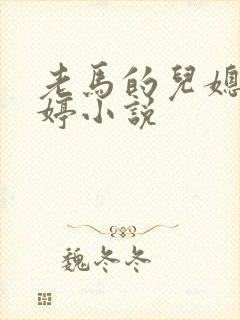 老馬的兒媳
婷小說
魏冬冬